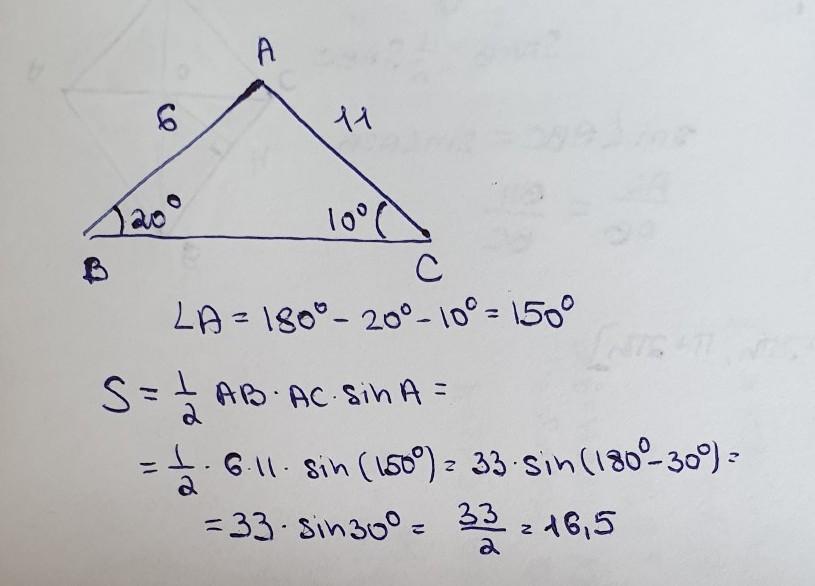 A
6
11
20°
10°
B
C
∠A = 180° - 20° - 10° = 150°
S = 1/2 AB · AC · sin A =
= 1/2 · 6 · 11 · sin (150°) = 33 · sin (180° - 30°) =
= 33 · sin 30° = 33/2 = 16,5